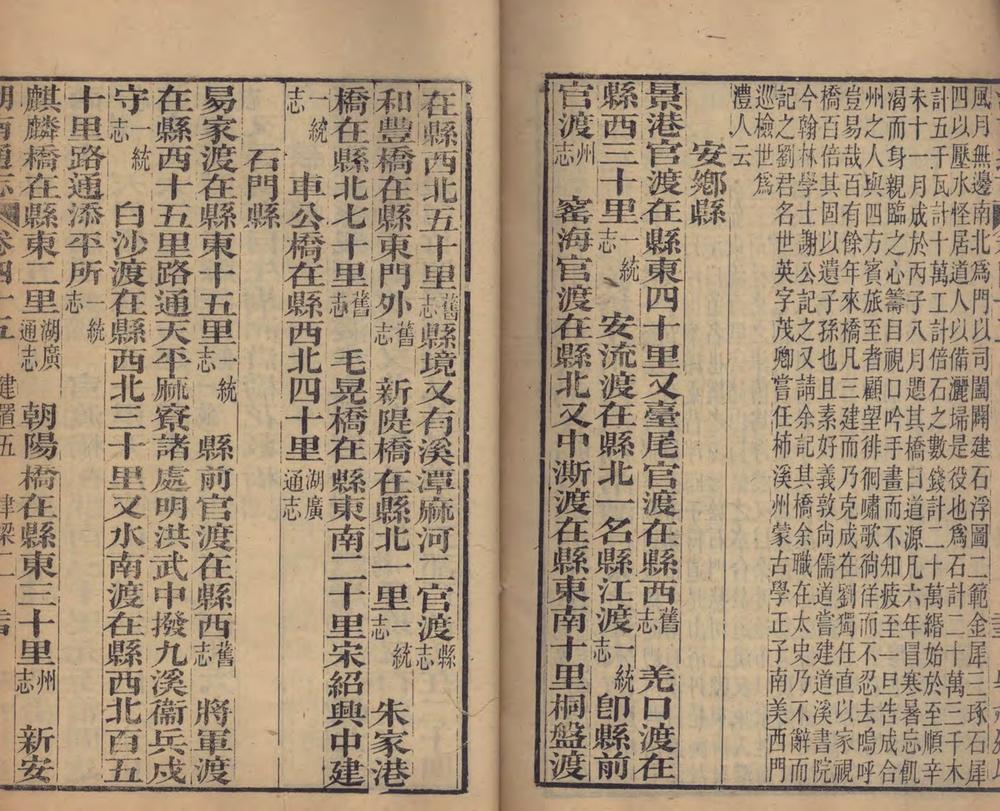 風月無邊南北爲門以司闔闢建石浮圖二範金犀三琢石犀
四以壓水怪居道人以備灑埽是役也爲石計二十萬三千木
計五千瓦計十萬工計倍石之數錢計二十萬緡始於至順辛
未十一月成於丙子八月題其橋曰道源凡六年冒寒暑忘飢
渴而身親臨之心籌目視口吟手畫而不知疲至一旦告成合
州之人與四方賓旅至者顧望徘徊嘯歌徜徉而不忍去嗚呼
豈易哉百有餘年來橋凡三建而乃克成在劉獨任直以家視
橋百倍其固以遺子孫也且素好義敦尚儒道嘗建道溪書院
今翰林學士謝公記之又請余記其橋余職在太史乃不辭而
記之劉君名世英字茂卿嘗任柿溪州蒙古學正子南美西門
巡檢世爲
澧人云
安鄉縣
景港官渡在縣東四十里又臺尾官渡在縣西舊志 羌口渡在
縣西三十里一統志 安流渡在縣北一名縣江渡一統志卽縣前
官渡州志 窰海官渡在縣北又中澌渡在縣東南十里桐盤渡
在縣西北五十里舊志縣境又有溪潭麻河二官渡縣志
和豐橋在縣東門外舊志 新隄橋在縣北一里一統志 朱家港
橋在縣北七十里舊志 毛晃橋在縣東南二十里宋紹興中建
一統志 車公橋在縣西北四十里湖廣通志
石門縣
易家渡在縣東十五里一統志 縣前官渡在縣西舊志 將軍渡
在縣西十五里路通天平麻寮諸處明洪武中撥九溪衞兵戍
守一統志 白沙渡在縣西北三十里又水南渡在縣西北百五
十里路通添平所一統志
麒麟橋在縣東二里湖廣通志 朝陽橋在縣東三十里州志 新安
湖南通志 卷四十五 建置五 津梁二